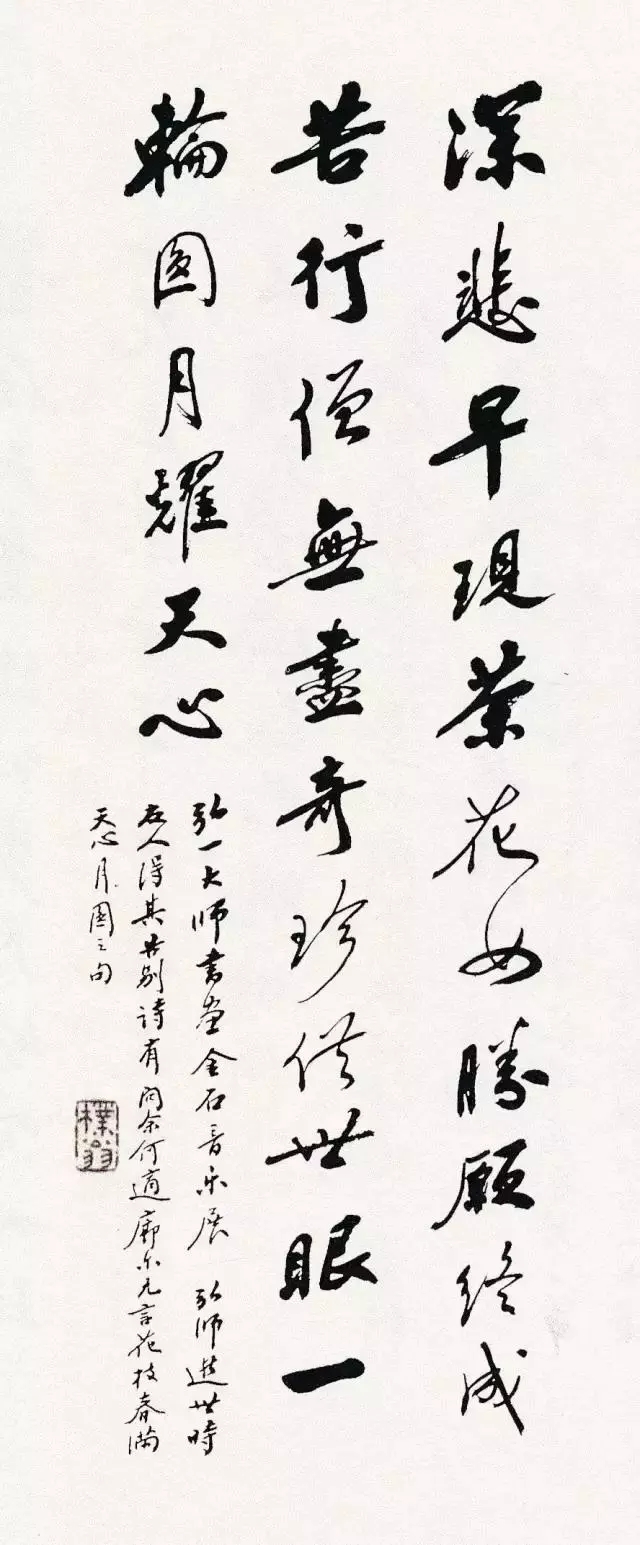 深悲早現茶花女勝願終成
苦行僧無盡奇珍供世眼一
輪圓月耀天心
弘一大师書畫金石音乐展 弘师逝世時
友人得其告别詩有问余何適廓尔亡言花枝春满
天心月圆之句
樸翁